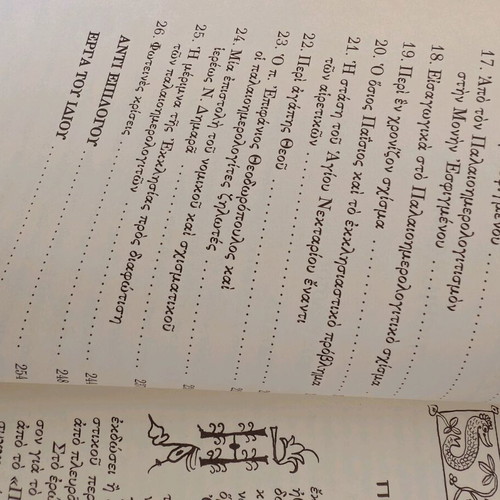 17. Ἀπὸ τὸν Παλαιοημερολογιτισμὸν
στὴν Μονὴν Ἐσφιγμένου
18. Εἰσαγωγικὰ στὸ Παλαιοημερολογιτικὸ σχίσμα
19. Περὶ ἓν χρονίζον σχίσμα
20. Ὁ ὅσιος Παΐσιος καὶ τὸ ἐκκλησιαστικὸ πρόβλημα
21. Ἡ στάση τοῦ Ἁγίου Νεκταρίου ἔναντι
τῶν αἱρετικῶν
22. Περὶ ἀγάπης Θεοῦ
23. Ὁ π. Ἐπιφάνιος Θεοδωρόπουλος καὶ
οἱ παλαιοημερολογίτες ζηλωτές
24. Μία ἐπιστολὴ τοῦ νομικοῦ καὶ σχισματικοῦ
ἱερέως Ν. Δημαρᾶ
25. Ἡ μέριμνα τῆς Ἐκκλησίας πρὸς διαφώτιση
τῶν παλαιοημερολογητῶν
26. Φωτεινὲς κρίσεις
ΑΝΤΙ ΕΠΙΛΟΓΟΥ 248
ΕΡΓΑ ΤΟΥ ΙΔΙΟΥ 254
Η
ἐκδώσει ἡ
στικοῦ περ
ἀπὸ πλευρᾶ
σον γιὰ τὸ
Στὸ ἐρώ
ἀπὸ τὸ «Π